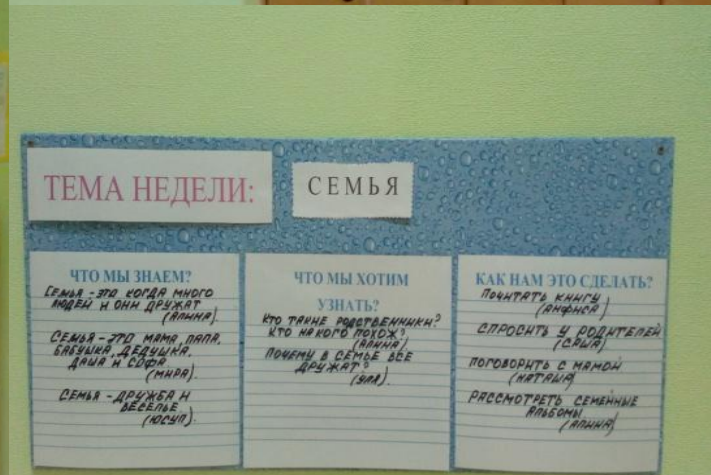 ТЕМА НЕДЕЛИ:
СЕМЬЯ
ЧТО МЫ ЗНАЕМ?
СЕМЬЯ - ЭТО КОГДА МНОГО
ЛЮДЕЙ И ОНИ ДРУЖАТ
(АЛИНА).
СЕМЬЯ - ЭТО МАМА, ПАПА,
БАБУШКА, ДЕДУШКА,
ДАША И СОФА
(МИРА).
СЕМЬЯ - ДРУЖБА И
ВЕСЕЛЬЕ
(ЮСУП).
ЧТО МЫ ХОТИМ
УЗНАТЬ?
КТО ТАКИЕ РОДСТВЕННИКИ?
КТО НА КОГО ПОХОЖ?
(АЛИНА)
ПОЧЕМУ В СЕМЬЕ ВСЕ
ДРУЖАТ?
(ЭЛЯ).
КАК НАМ ЭТО СДЕЛАТЬ?
ПОЧИТАТЬ КНИГУ
(АНФИСА)
СПРОСИТЬ У РОДИТЕЛЕЙ
(САША)
ПОГОВОРИТЬ С МАМОЙ
(НАТАША)
РАССМОТРЕТЬ СЕМЕЙНЫЕ
АЛЬБОМЫ
(АЛИНА)